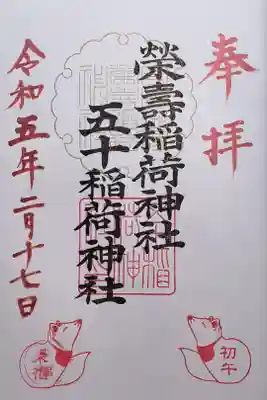 奉拝
榮壽稲荷神社
五十稲荷神社
令和五年二月十七日
初午